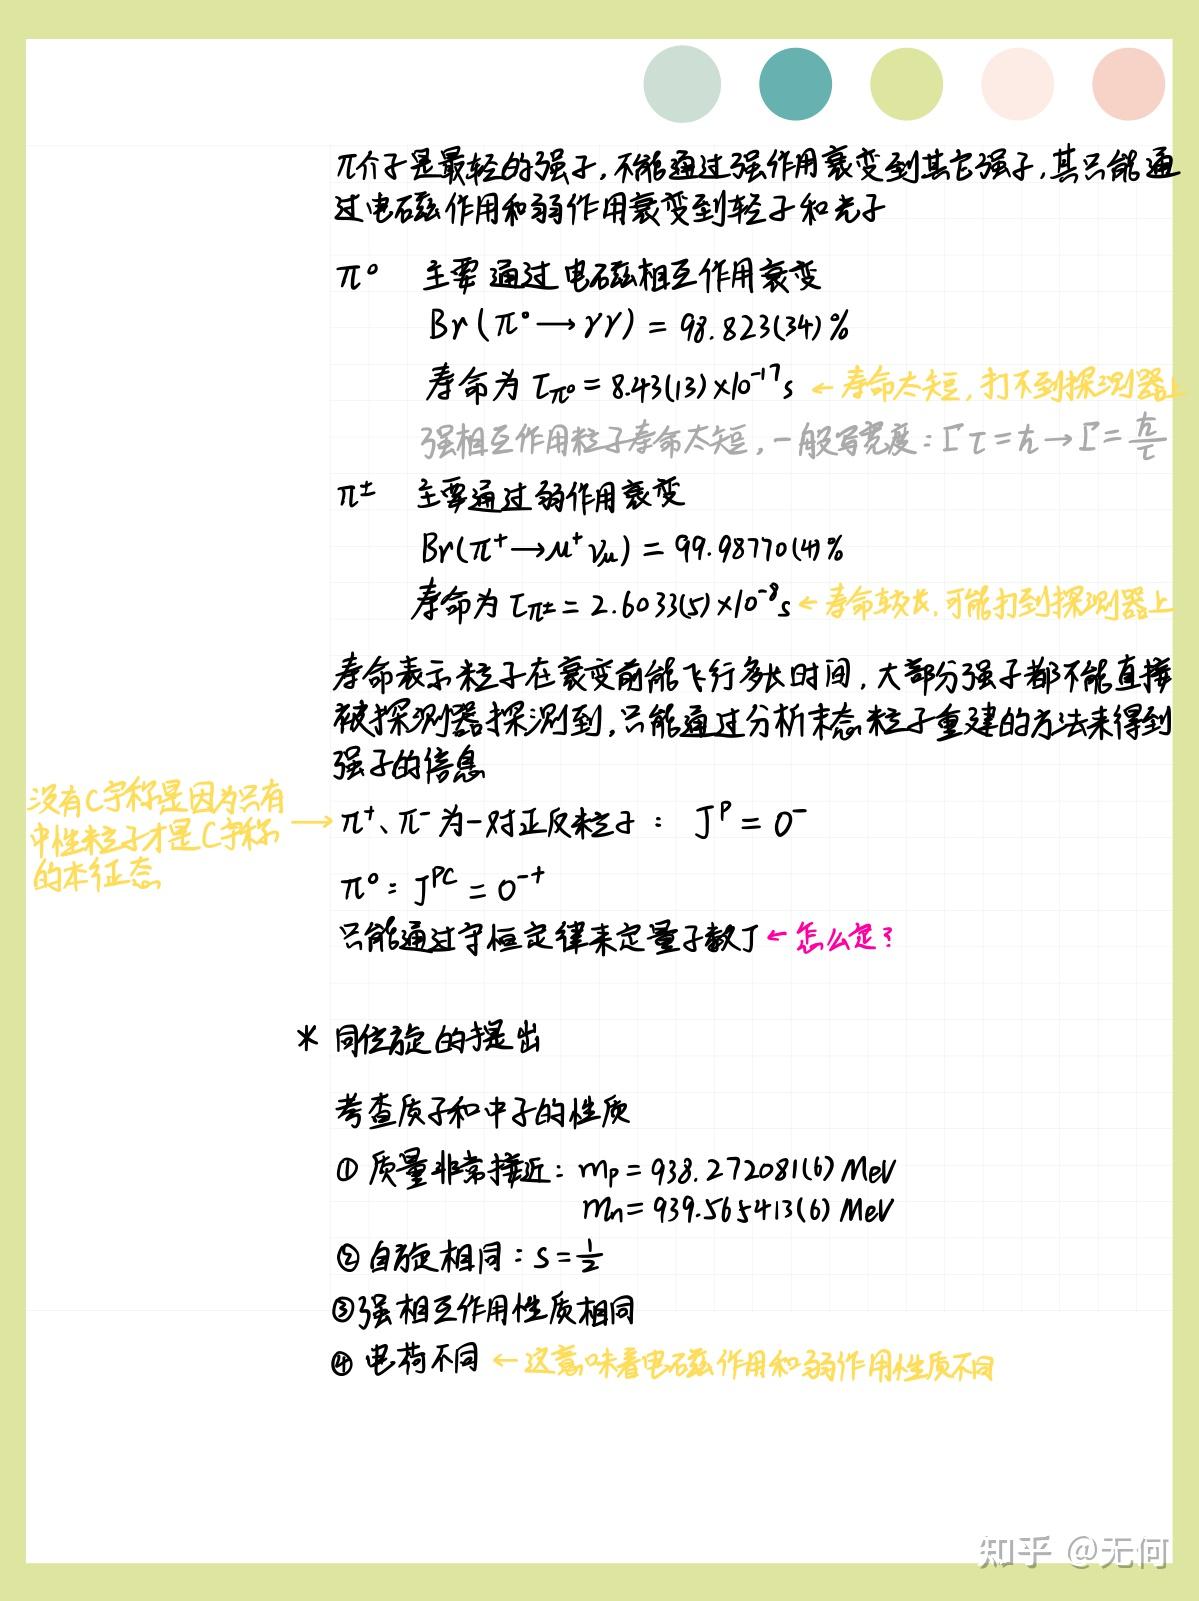 π介子是最轻的强子,不能通过强作用衰变到其它强子,其只能通
过电磁作用和弱作用衰变到轻子和光子
π⁰ 主要通过电磁相互作用衰变
Br(π⁰→γγ) = 98.823(34)%
寿命为 τπ⁰ = 8.43(13)×10⁻¹⁷s ← 寿命太短,打不到探测器上
强相互作用粒子寿命太短,一般写宽度:Γτ=ħ→Γ=ħ/τ
π± 主要通过弱作用衰变
Br(π⁺→μ⁺νμ) = 99.98770(4)%
寿命为 τπ± = 2.6033(5)×10⁻⁸s ← 寿命较长,可能打到探测器上
寿命表示粒子在衰变前能飞行多长时间,大部分强子都不能直接
被探测器探测到,只能通过分析末态粒子重建的方法来得到
强子的信息
没有C宇称是因为只有
中性粒子才是C宇称
的本征态
→ π⁺、π⁻为一对正反粒子: Jᴾ = 0⁻
π⁰: Jᴾᶜ = 0⁻⁺
只能通过守恒定律来定量子数J ← 怎么定?
* 同位旋的提出
考查质子和中子的性质
① 质量非常接近: mp = 938.272081(6) MeV
mn = 939.565413(6) MeV
② 自旋相同: S = 1/2
③ 强相互作用性质相同
④ 电荷不同 ← 这意味着电磁作用和弱作用性质不同
知乎 @无何